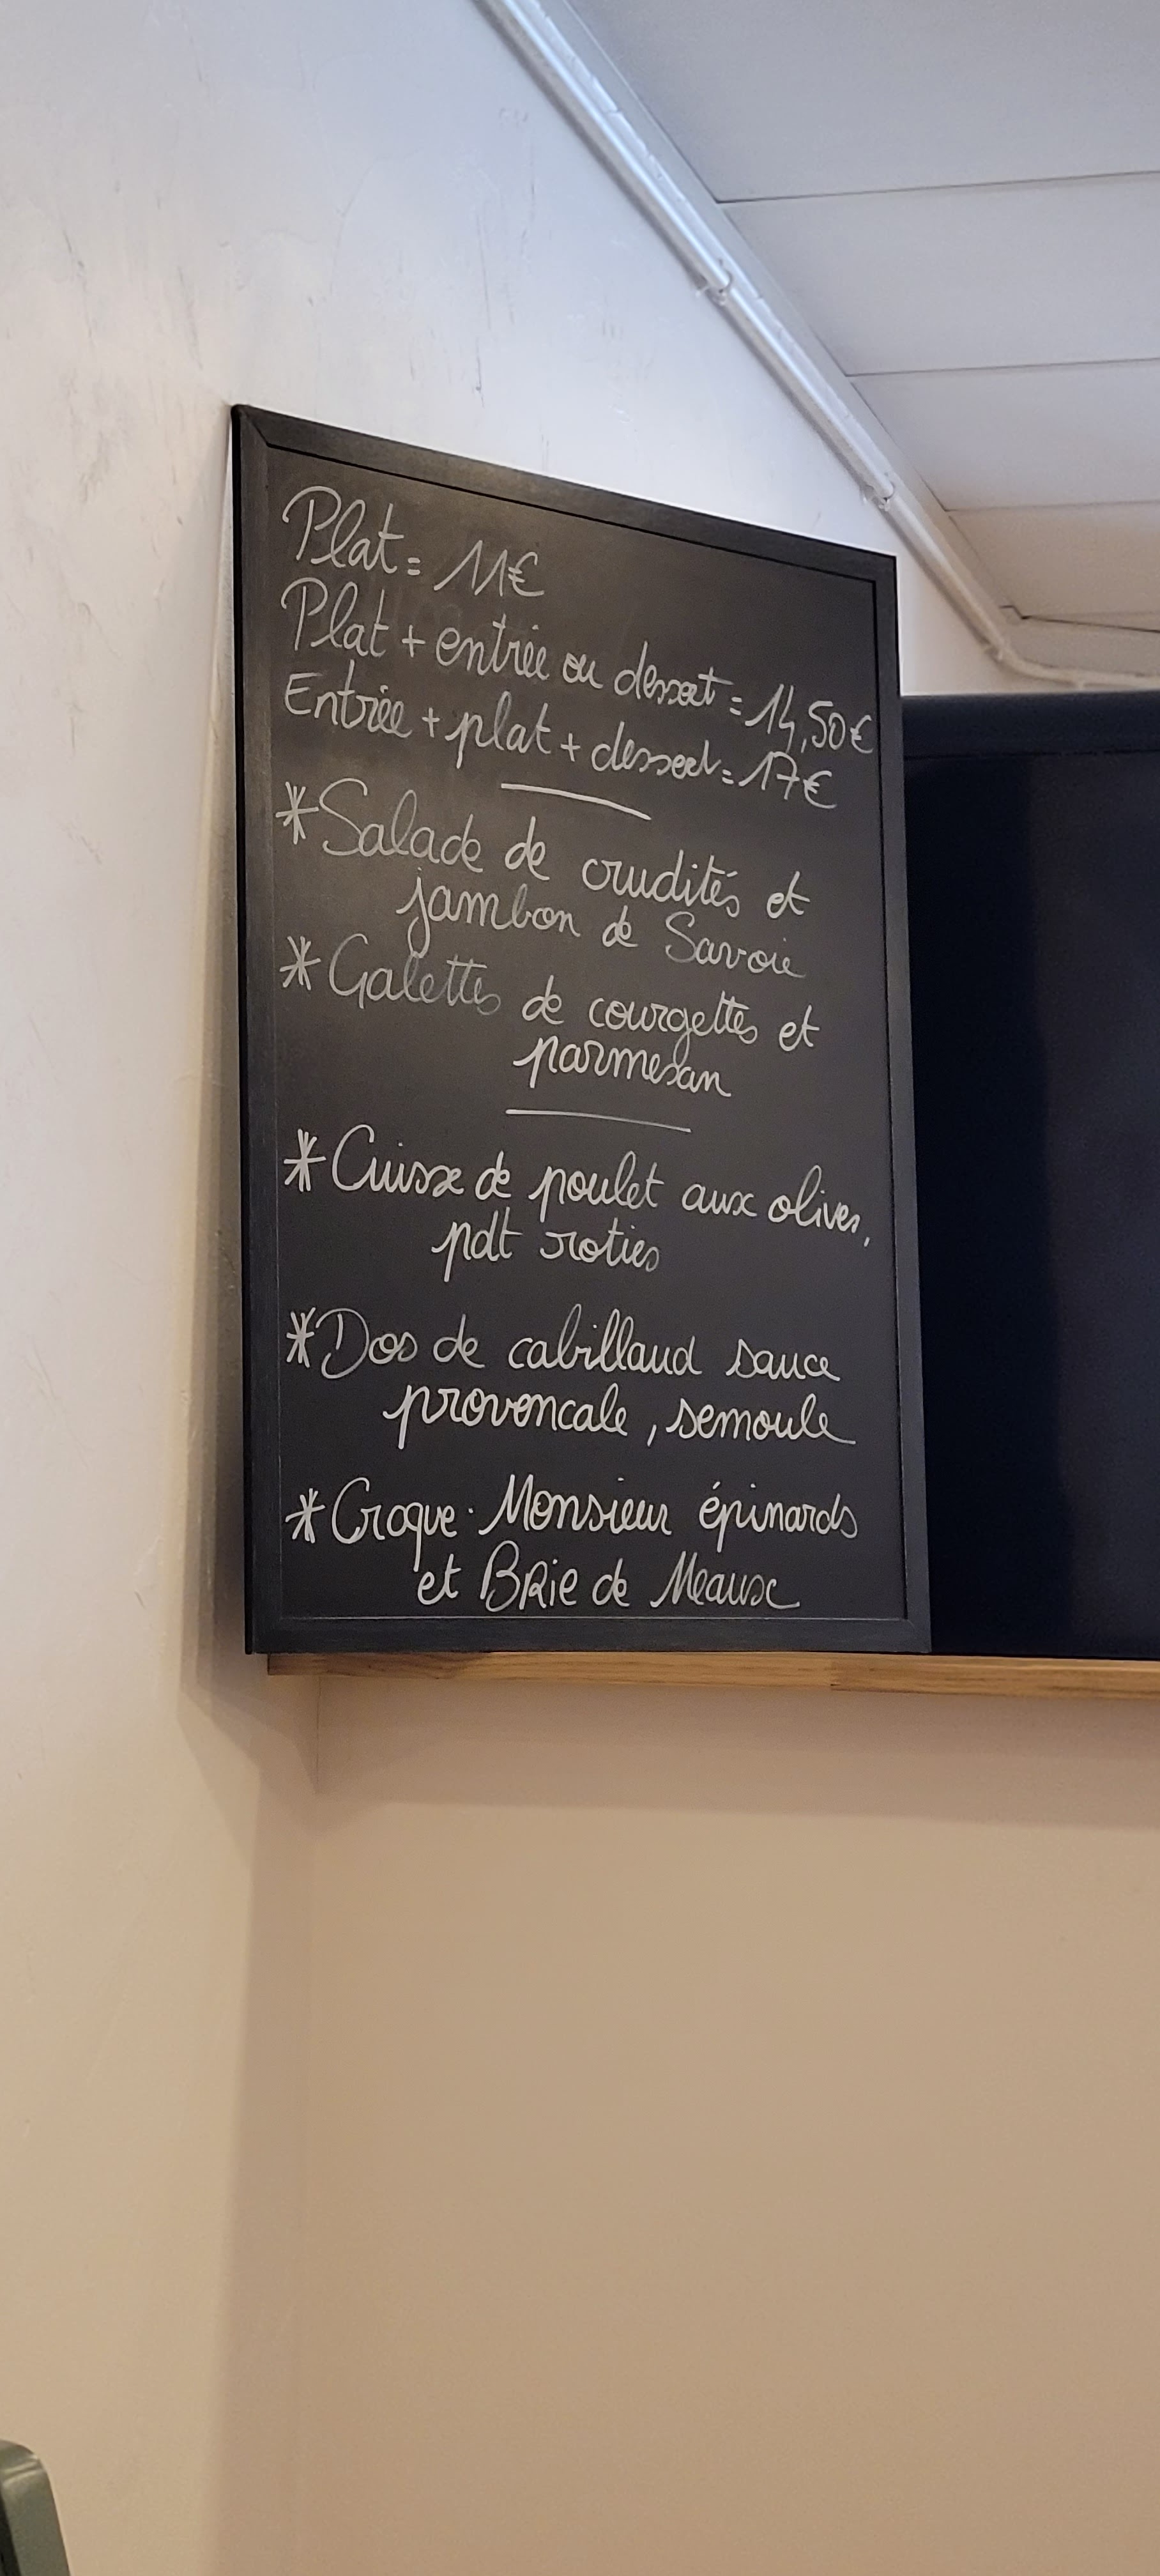 Plat = 11€
Plat + entrée ou dessert = 14,50€
Entrée + plat + dessert = 17€
* Salade de crudités et
jambon de Savoie
* Galettes de courgettes et
parmesan
* Cuisse de poulet aux olives,
pdt roties
* Dos de cabillaud sauce
provencale, semoule
* Croque-Monsieur épinards
et Brie de Meaux